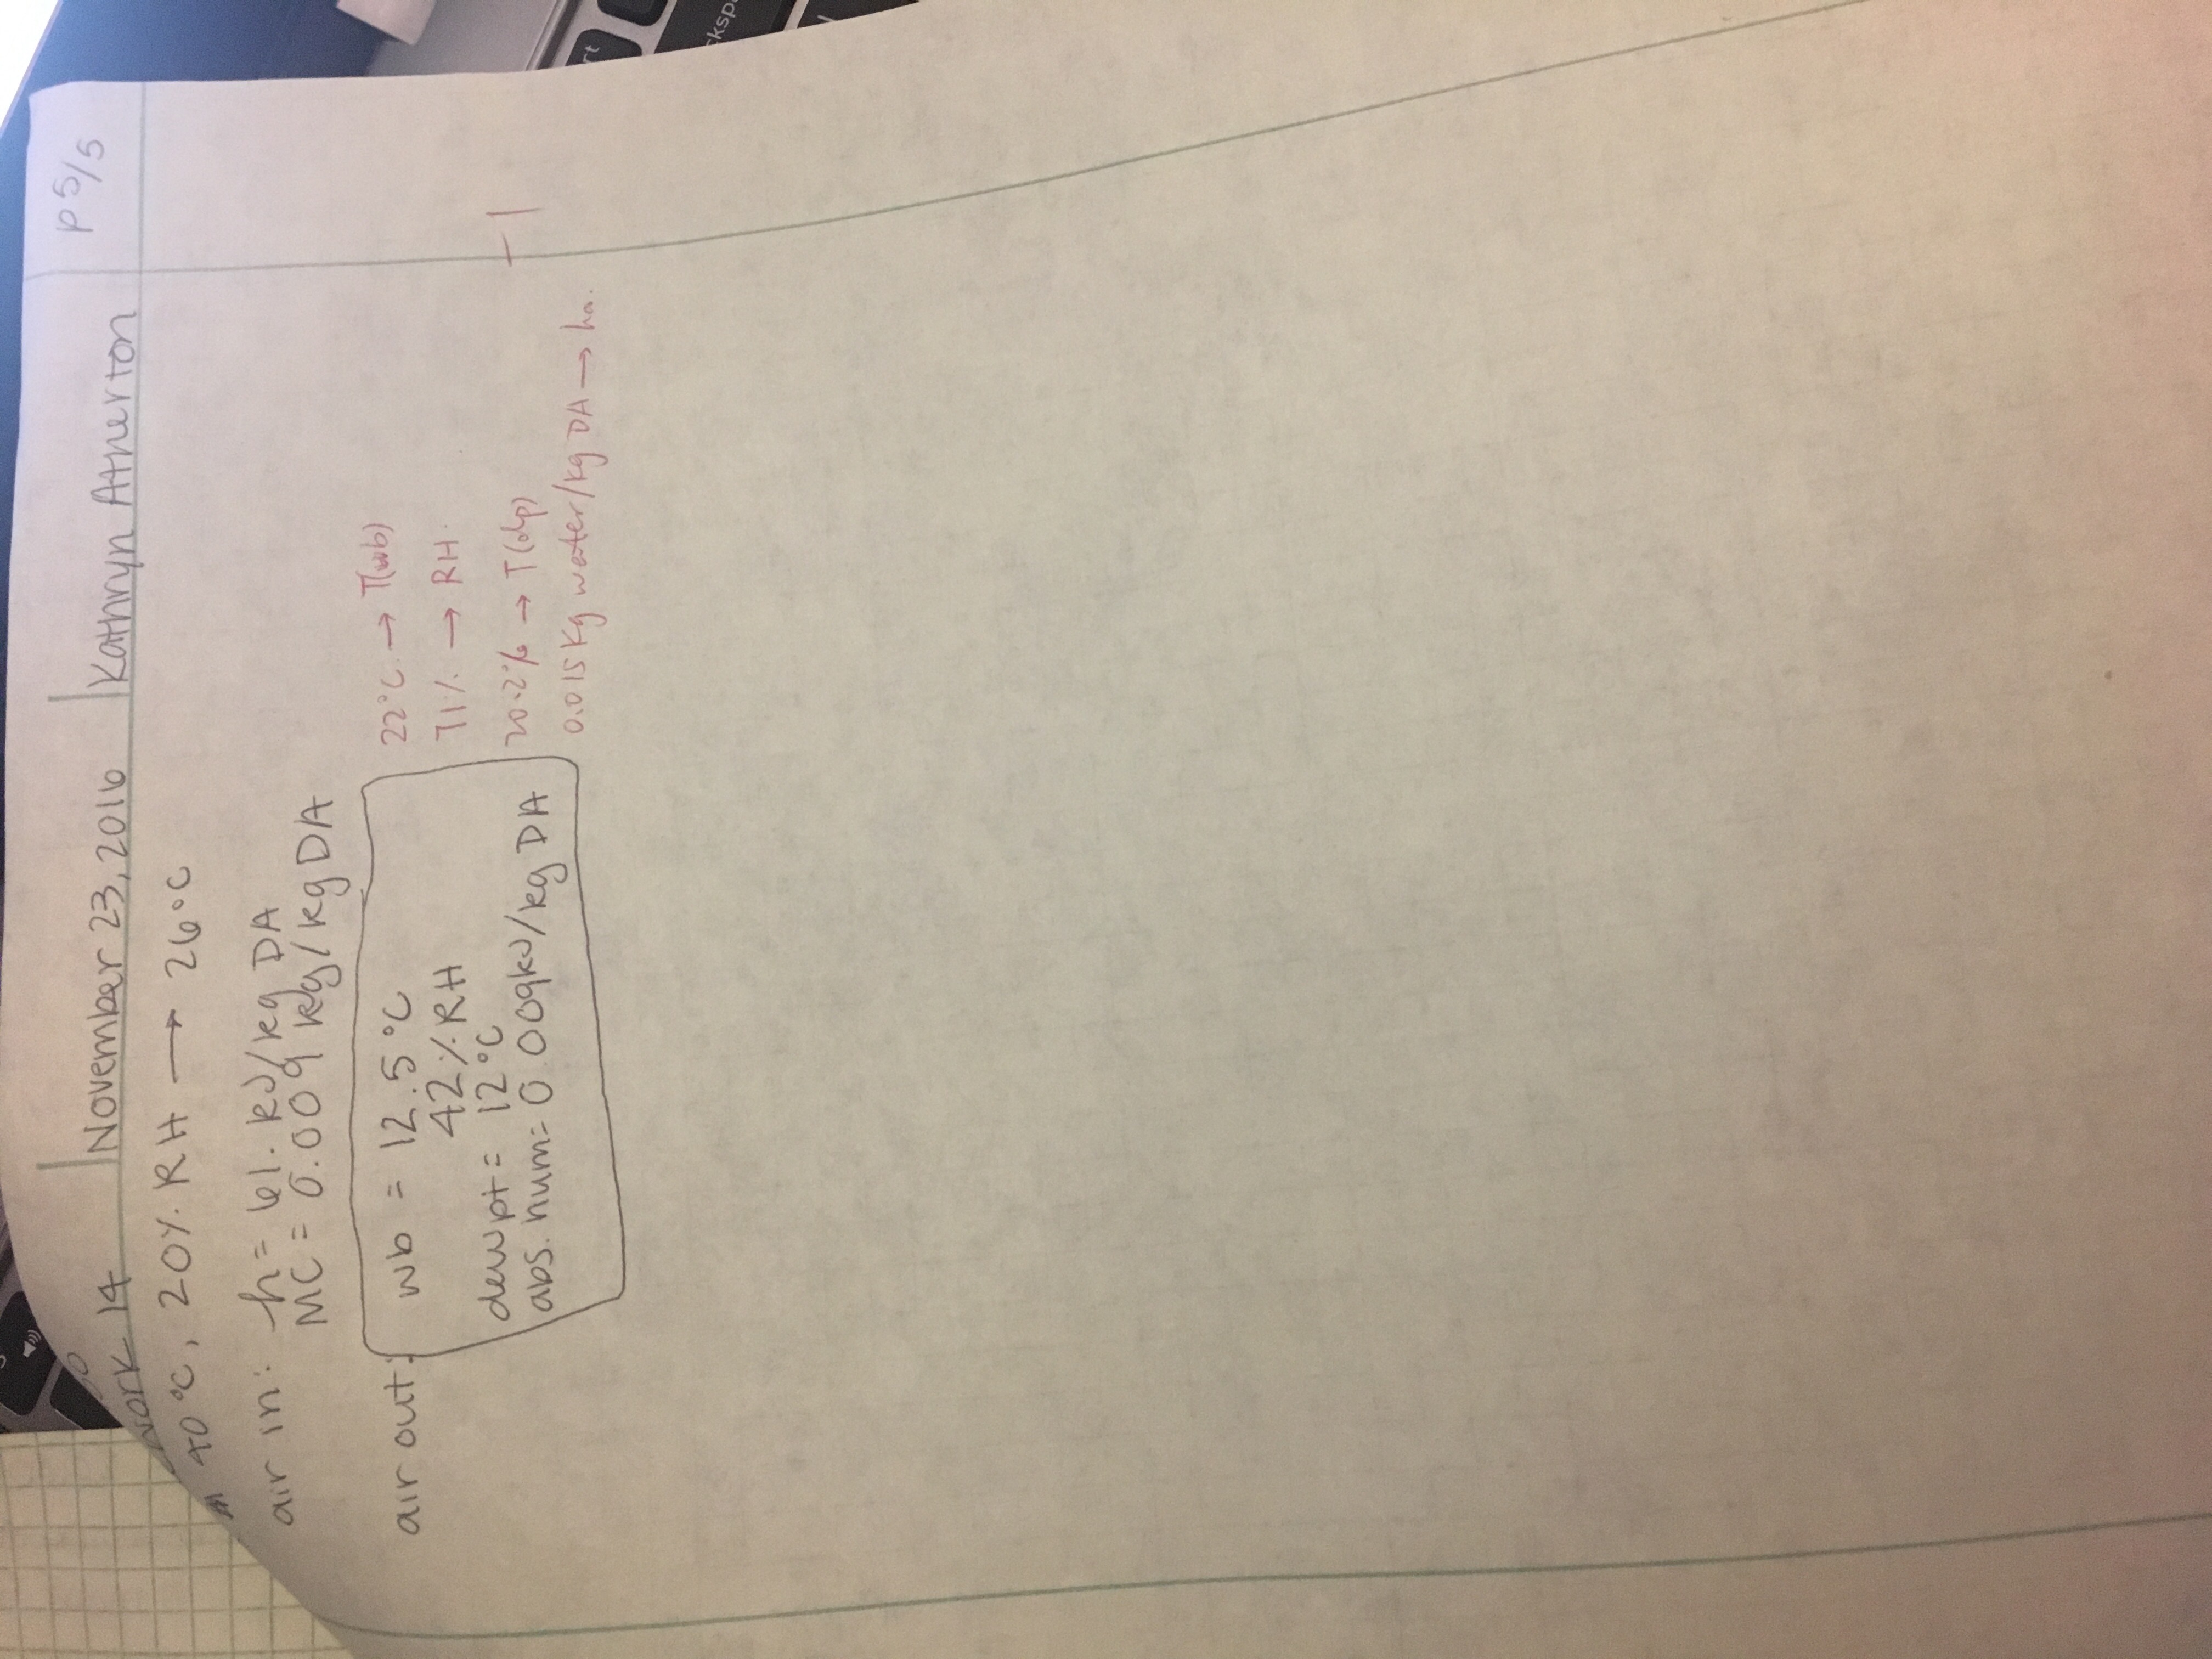 work 14 November 23, 2016 Kathryn Atherton p 5/5
40°C, 20% RH → 26°C
air in: h = 61. kJ/kg DA
MC = 0.009 kg/kg DA
air out: wb = 12.5°C
42% RH
dewpt = 12°C
abs. hum = 0.009kJ/kg DA
22°C → T(wb)
71% → RH
20.2% → T(dp)
0.015 kg water/kg DA → ha.
-1